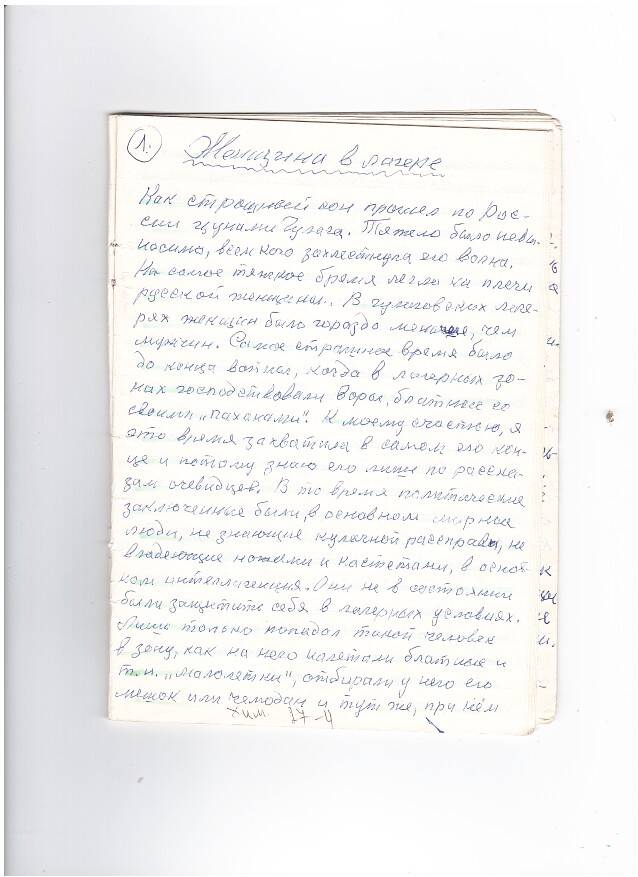 1.
Женщина в лагере
Как страшный сон прошел по Рос-
сии цунами Гулага. Тяжело было невы-
носимо, всем кого захлестнула его волна.
Но самое тяжкое бремя легло на плечи
русской женщины. В гулаговских лаге-
рях женщин было гораздо меньше, чем
мужчин. Самое страшное время было
до конца войны, когда в лагерных зо-
нах господствовали воры, блатные со
своими „паханами". К моему счастью, я
это время захватила в самом его кон-
це и потому знаю его лишь по расска-
зам очевидцев. В то время политические
заключенные были, в основном мирные
люди, не знающие кулачной расправы, не
владеющие ножами и кастетами, в основ-
ном интеллигенция. Они не в состоянии
были защитить себя в лагерных условиях.
Лишь только попадал такой человек
в зону, как на него налетали блатные и
т.н. „малолетки", отбирали у него его
мешок или чемодан и тут же, при нём
17-4